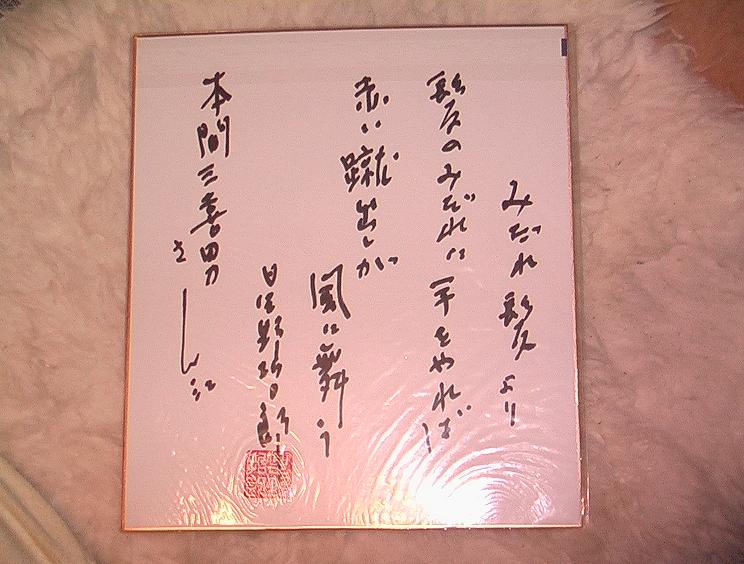 みだれ髪より
髪のみだれに手をやれば
赤い蹴出しが
風に舞う
星野哲郎
本間三喜男さん江